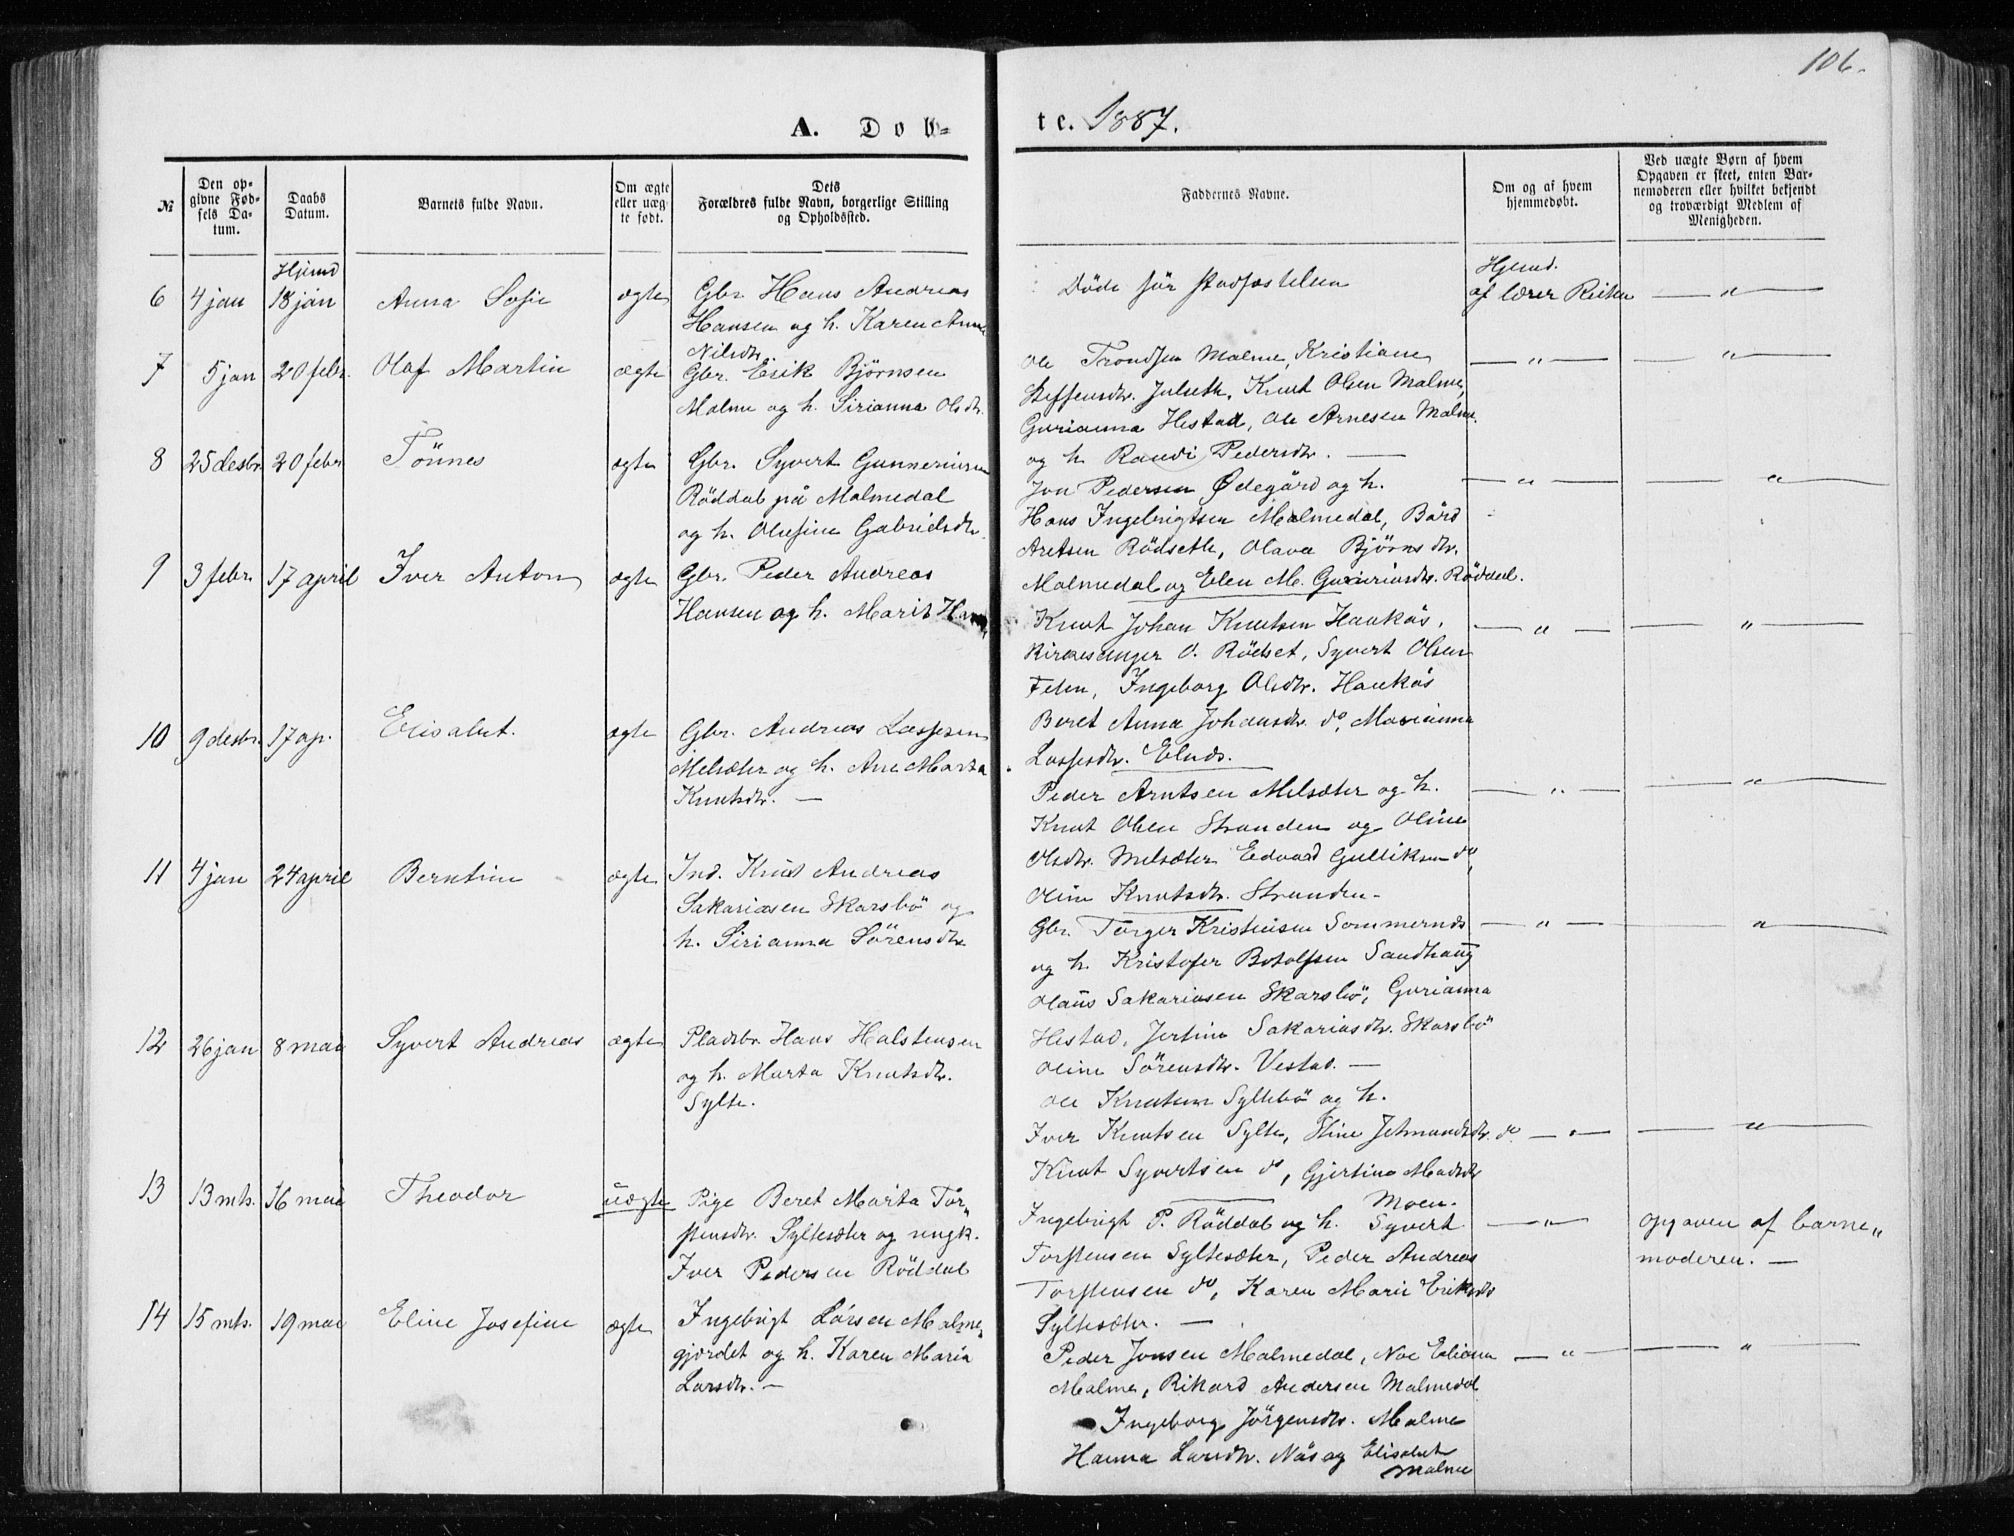 106.
A. Døb-
te. 1887.
№
Den opgivne Fødsels Datum.
Daabs Datum.
Barnets fulde Navn.
Om ægte eller uægte født.
Dets Forældres fulde Navn, borgerlige Stilling og Opholdssted.
Faddernes Navne.
Om og af hvem hjemmedøbt.
Ved uægte Børn af hvem Opgaven er skeet, enten Barnemoderen eller hvilket bekjendt og troværdigt Medlem af Menigheden.
6
4 jan
Hjemd
18 jan
Anna Sofie
ægte
Gbr. Hans Andreas
Hansen og h. Karen Anna
Nilsdtr.
Døde før stadfæstelsen
Hjemd.
af lærer Reiten
— " —
7
5 jan
20 febr.
Olaf Martin
ægte
Gbr. Erik Bjørnsen
Malme og h. Sirianna Olsdtr.
Ole Trondsen Malme, Kristiane
Steffensdtr. Julseth, Knut Olsen Malme,
Gurianna Hestad, Ole Arnesen Malme
og h. Randi Pedersdtr. —
— " —
— " —
8
25 desbr.
20 febr
Tönnes
ægte
Gbr. Syvert Gunneriusen
Röddal på Malmedal
og h. Olufine Gabrielsdtr.
Jon Pedersen Ødegård og h.
Hans Ingebrigtsen Malmedal, Bård
Aretsen Rödseth, Olava Björnsdtr.
Malmedal og Elen M. Guneriusdtr. Röddal.
— " —
— " —
9
3 febr.
17 april
Iver Anton
ægte
Gbr. Peder Andreas
Hansen og h. Marit
Knut Johan Knutsen Haukås,
Kirkesanger O. Rödset, Syvert Olsen
Ingeborg Olsdtr. Haukås
Beret Anna Johansdtr. do, Marianna
Lassesdtr. Elnes.
— " —
— " —
10
9 desbr.
17 ap.
Elisabet.
ægte
Gbr. Andreas Lassesen
Melsæter og h. Ane Marta
Knutsdtr. —
Peder Arntsen Melsæter og h.
Knut Olsen Stranden og Oline
Olsdtr. Melsæter Edvard Gulliksen do,
Oline Knutsdtr. Stranden -
— " —
— " —
11
4 jan
24 april
Berntine
ægte
Ind. Knut Andreas
Sakariasen Skarsbö og
h. Sirianna Sörensdtr
Gbr. Torger Kristensen Sommernes
og h. Kristofer Botolfsen Sandhaug
Olaus Sakariasen Skarsbö, Gurianna
Hestad, Jertine Sakariasdtr. Skarsbö
Oline Sörensdtr. Vestad. —
— " —
— " —
12
26 jan
8 mai
Syvert Andreas
ægte
Pladsbr. Hans Halstensen
og h. Marta Knutsdtr.
Sylte.
Ole Knutsen Syltebö og h.
Iver Knutsen Sylte, Stine Jetmundsdtr. do.
Knut Syvertsen do, Gjertine Madsdtr
Moen.
— " —
— " —
13
13 mts.
16 mai
Theodor
uægte
Pige Beret Marta Tor„
stensdtr. Syltesæter og ungk.
Iver Pedersen Röddal
Ingebrigt P. Röddal og h. Syvert
Torstensen Syltesæter, Peder Andreas
Torstensen do, Karen Marie Eriksdtr
Syltesæter. —
— " —
Opgaven af barne„
moderen. —
14
15 mts.
19 mai
Eline Josefine
ægte
Ingebrigt Larsen Malme„
gjerdet og h. Karen Maria
Larsdtr. —
Peder Jonsen Malmedal, Noe Eliasen
Malme, Rikard Andersen Malmedal
Ingeborg Jörgensdtr. Malme
Hanna Larsdtr. Nås og Elisabet
Malme
— " —
— " —